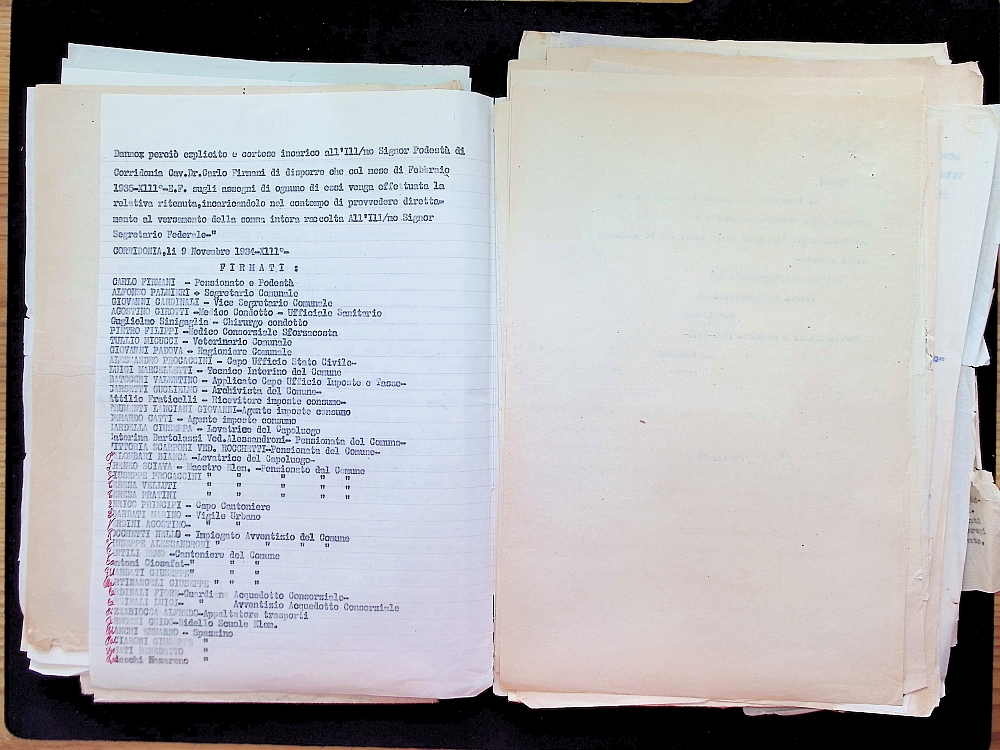 Dannox perciò esplicito e cortese incarico all'Ill/mo Signor Podestà di
Corridonia Cav.Dr.Carlo Firmani di disporre che col mese di Febbraio
1935-XIII°-E.F. sugli assegni di ognuno di essi venga effettuata la
relativa ritenuta,incaricandolo nel contempo di provvedere diretta=
mente al versamento della somma intera raccolta All'Ill/mo Signor
Segretario Federale-"
CORRIDONIA,li 9 Novembre 1934-XIII°-
FIRMATI :
CARLO FIRMANI - Pensionato e Podestà
ALFONSO PALMIERI - Segretario Comunale
GIOVANNI CARDINALI - Vice Segretario Comunale
AGOSTINO GIROTTI -Medico Condotto - Ufficiale Sanitario
Guglielmo Sinigaglia - Chirurgo condotto
PIETRO FILIPPI -Medico Consorziale Sforzacosta
TULLIO MICUCCI - Veterinario Comunale
GIOVANNI PADOVA - Ragioniere Comunale
ALESSANDRO PROCACCINI - Capo Ufficio Stato Civile-
LUIGI MARCELLETTI - Tecnico Interino del Comune
BATOCCHI VALENTINO - Applicato Capo Ufficio Imposte e Tasse-
GARSETTI GUGLIELMO - Archivista del Comune-
Attilio Fraticelli - Ricevitore imposte consumo-
LANCIANI GIOVANNI-Agente imposte consumo
GATTI - Agente imposte consumo
GIUSEPPA - Levatrice del Capoluogo
Caterina Bartolassi Ved.Alessandroni- Pensionata del Comune-
VITTORIA SCARPONI VED. ROCCHETTI-Pensionata del Comune-
BIANCA -Levatrice del Capoluogo-
IRENEO SCIAVA - Maestro Elem. -Pensionato dal Comune
GIUSEPPE PROCACCINI " " " " "
TERESA VELLUTI " " " " "
TERESA PRATINI " " " " "
ENRICO PRINCIPI - Capo Cantoniere
MARINO - Vigile Urbano
AGOSTINO- " "
ROCCHETTI NELLO - Impiegato Avventizio del Comune
GIUSEPPE ALESSANDRONI " " " "
REMO -Cantoniere del Comune
Antoni Giosafat-" " "
GIUSEPPE" " "
MARTINANGELI GIUSEPPE " " "
CARDINALI FIORE-Guardiano Acquedotto Consorziale-
CARDINALI LUIGI- " Avventizio Acquedotto Consorziale
ALFREDO-Appaltatore trasporti
GUIDO-Bidello Scuole Elem.
BIANCHI ERMANNO - Spazzino
GIUSEPPE "
BENEDETTO "
Tedeschi Nazareno "